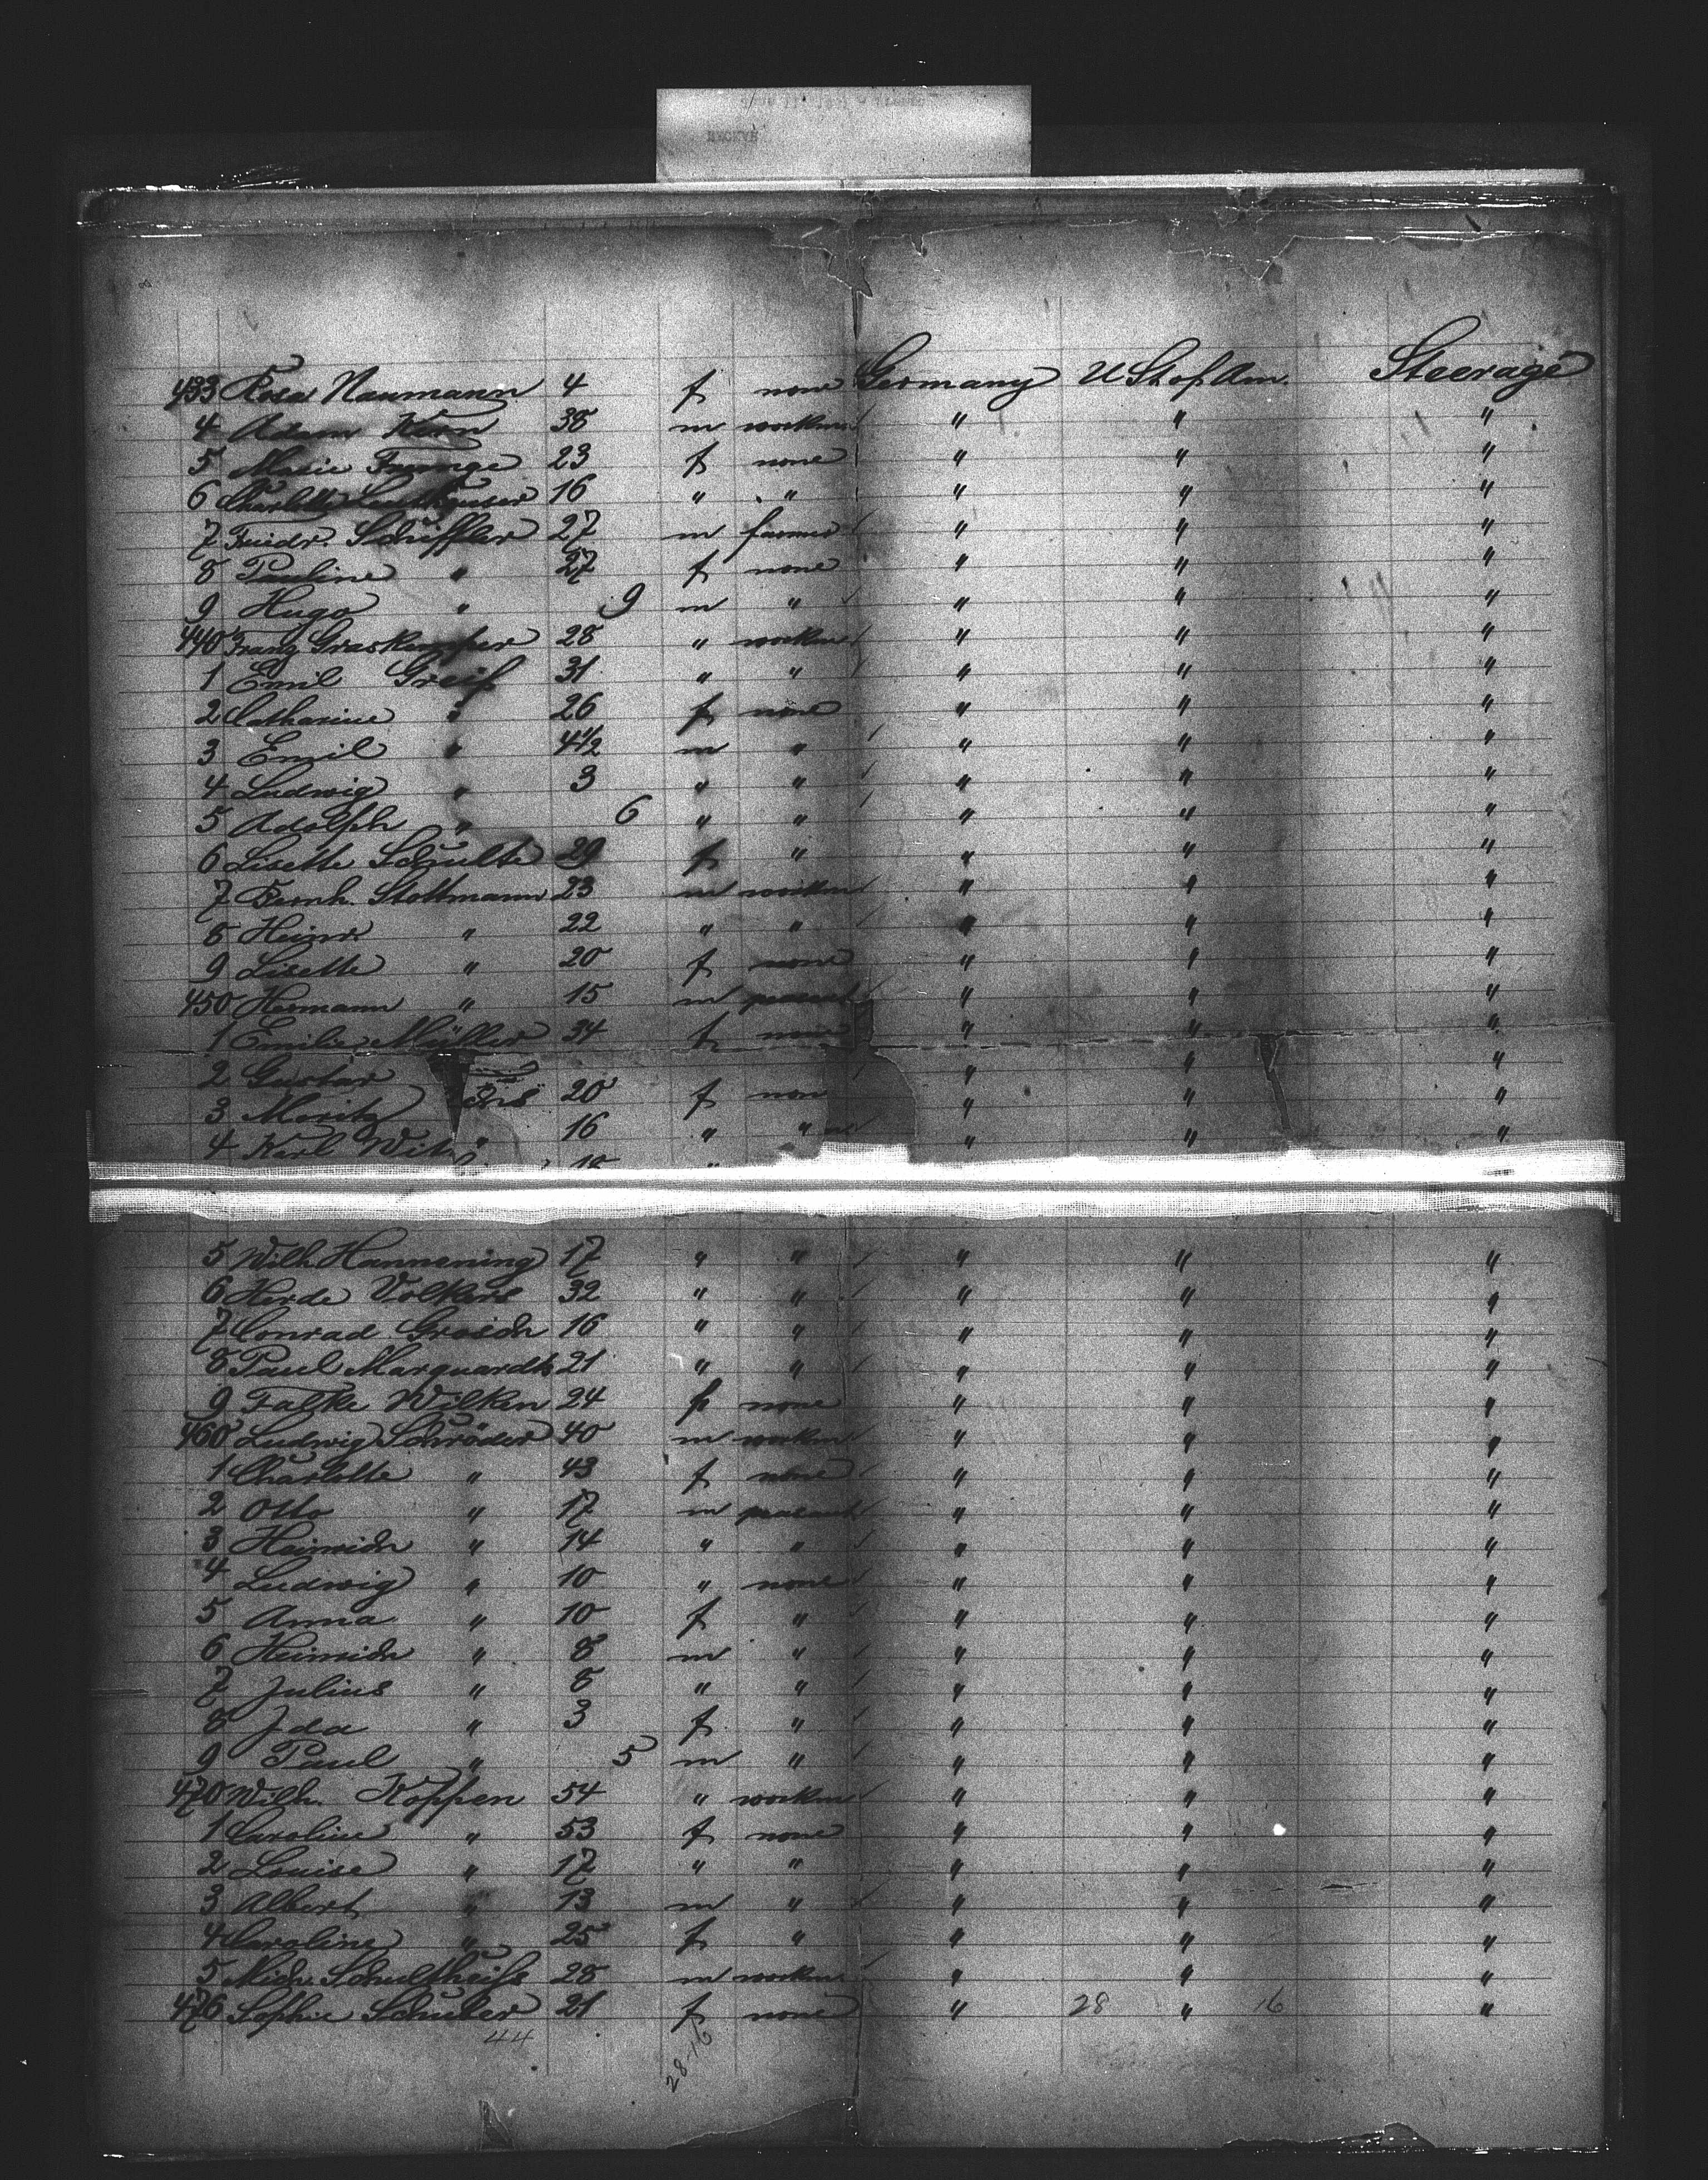 433 Rosa Naumann 4 f none Germany U St of Am. Steerage
4 Adam Kern 38 m workm " " "
5 Marie 23 f none " " "
6 Charlotte 16 " " " " "
7 Friedr. Schiffler 27 m farmer " " "
8 Pauline " 27 f none " " "
9 Hugo " 9 m " " " "
440 Franz Graskemper 28 " workm " " "
1 Emil Greif 31 " " " " "
2 Catharine " 26 f none " " "
3 Emil " 4 1/2 m " " " "
4 Ludwig " 3 " " " " "
5 Adolph " 6 " " " " "
6 Lisette Schulte 29 f " " " "
7 Bernh. Stottmann 23 m workm " " "
8 Heinr. " 22 " " " " "
9 Lisette " 20 f none " " "
450 Hermann " 15 m peasant " " "
1 Emilie Müller 34 f none " " "
2 Gustav " " "
3 Moritz 20 f non " " "
4 Karl Wilh 16 " " " " "
5 Wilh Hannening 17 " " " " "
6 Herde Volkers 32 " " " " "
7 Conrad Grosch 16 " " " " "
8 Paul Marquardt 21 " " " " "
9 Falke Wilken 24 f none " " "
460 Ludwig Schröder 40 m workm " " "
1 Charlotte " 43 f none " " "
2 Otto " 17 m peasant " " "
3 Heinrich " 14 " " " " "
4 Ludwig " 10 " none " " "
5 Anna " 10 f " " " "
6 Heinrich " 8 m " " " "
7 Julius " 8 " " " " "
8 Ida " 3 f " " " "
9 Paul " 5 m " " " "
470 Wilh. Koppen 54 " workm " " "
1 Caroline " 53 f none " " "
2 Louise " 17 " " " " "
3 Albert " 13 m " " " "
4 Caroline " 25 f " " " "
5 Mich. Schultheiss 28 m workm " " "
476 Sophie Schuler 21 f none " 28 " 16 "
44
28-16